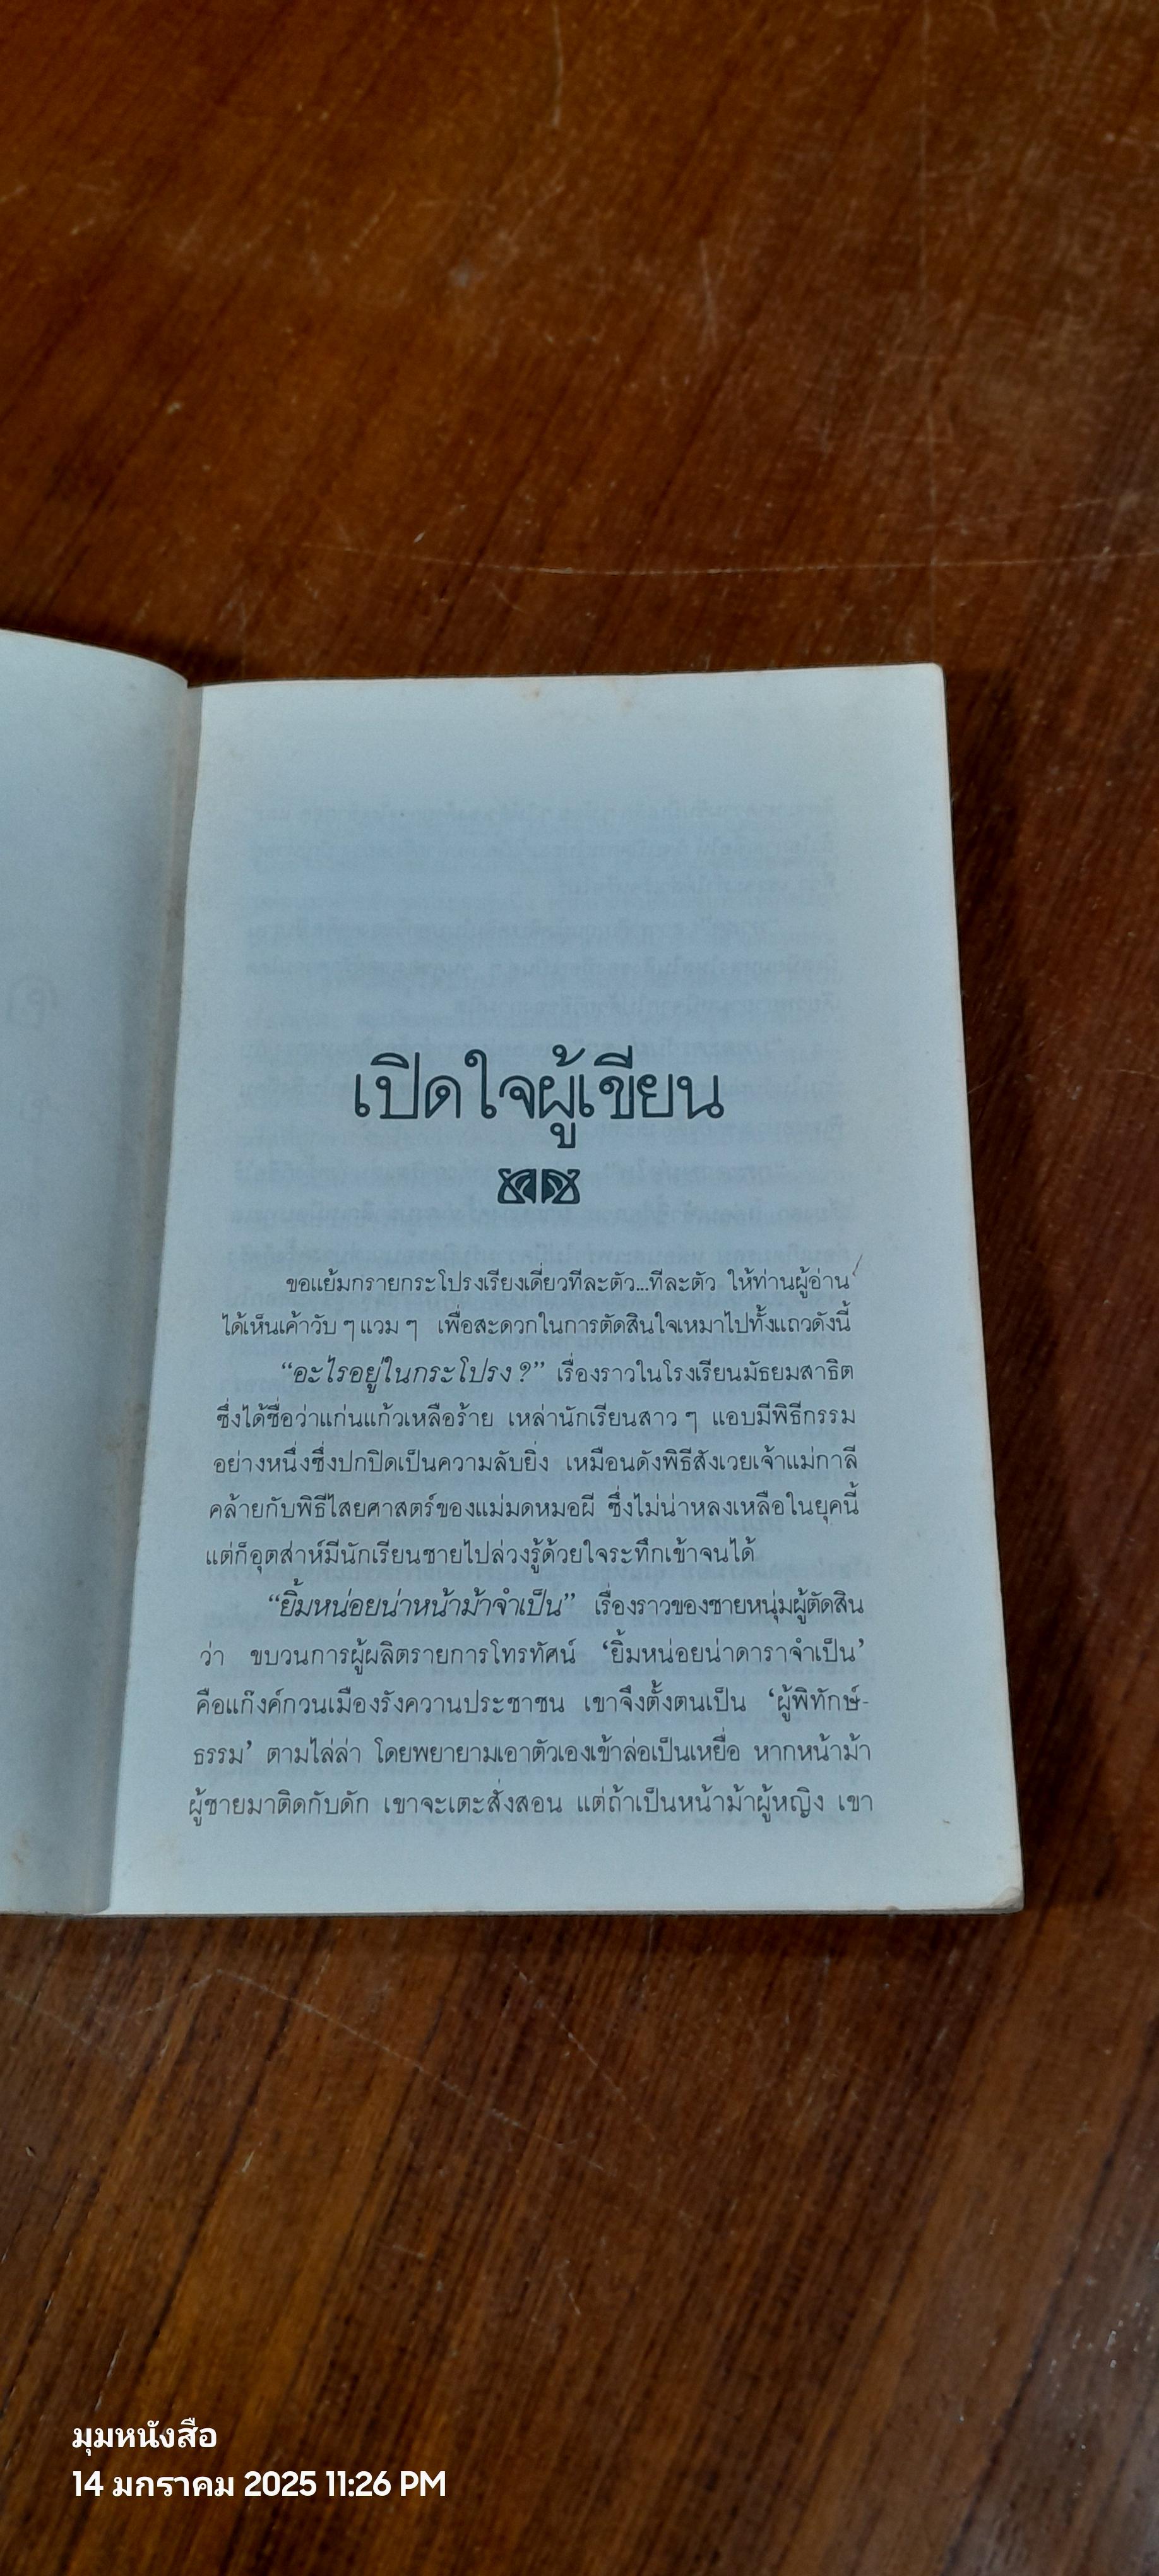 เปิดใจผู้เขียน
ขอแย้มกรายกระโปรงเรียงเดี่ยวทีละตัว...ทีละตัว ให้ท่านผู้อ่าน
ได้เห็นเค้าวับ ๆ แวม ๆ เพื่อสะดวกในการตัดสินใจเหมาไปทั้งแถวดังนี้
“อะไรอยู่ในกระโปรง ?” เรื่องราวในโรงเรียนมัธยมสาธิต
ซึ่งได้ชื่อว่าแก่นแก้วเหลือร้าย เหล่านักเรียนสาว ๆ แอบมีพิธีกรรม
อย่างหนึ่งซึ่งปกปิดเป็นความลับยิ่ง เหมือนดังพิธีสังเวยเจ้าแม่กาลี
คล้ายกับพิธีไสยศาสตร์ของแม่มดหมอผี ซึ่งไม่น่าหลงเหลือในยุคนี้
แต่ก็อุตส่าห์มีนักเรียนชายไปล่วงรู้ด้วยใจระทึกเข้าจนได้
“ยิ้มหน่อยน่าหน้าม้าจำเป็น” เรื่องราวของชายหนุ่มผู้ตัดสิน
ว่า ขบวนการผู้ผลิตรายการโทรทัศน์ ‘ยิ้มหน่อยน่าดาราจำเป็น’
คือแก๊งค์กวนเมืองรังควานประชาชน เขาจึงตั้งตนเป็น ‘ผู้พิทักษ์-
ธรรม’ ตามไล่ล่า โดยพยายามเอาตัวเองเข้าล่อเป็นเหยื่อ หากหน้าม้า
ผู้ชายมาติดกับดัก เขาจะเตะสั่งสอน แต่ถ้าเป็นหน้าม้าผู้หญิง เขา
มุมหนังสือ
14 มกราคม 2025 11:26 PM